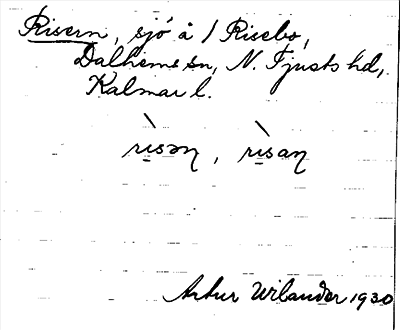 Risern, sjö å 1 Risebo,
Dalhems sn, N. Tjusts hd,
Kalmar l.
rìsǝn, rìsan
Artur Wilander 1930